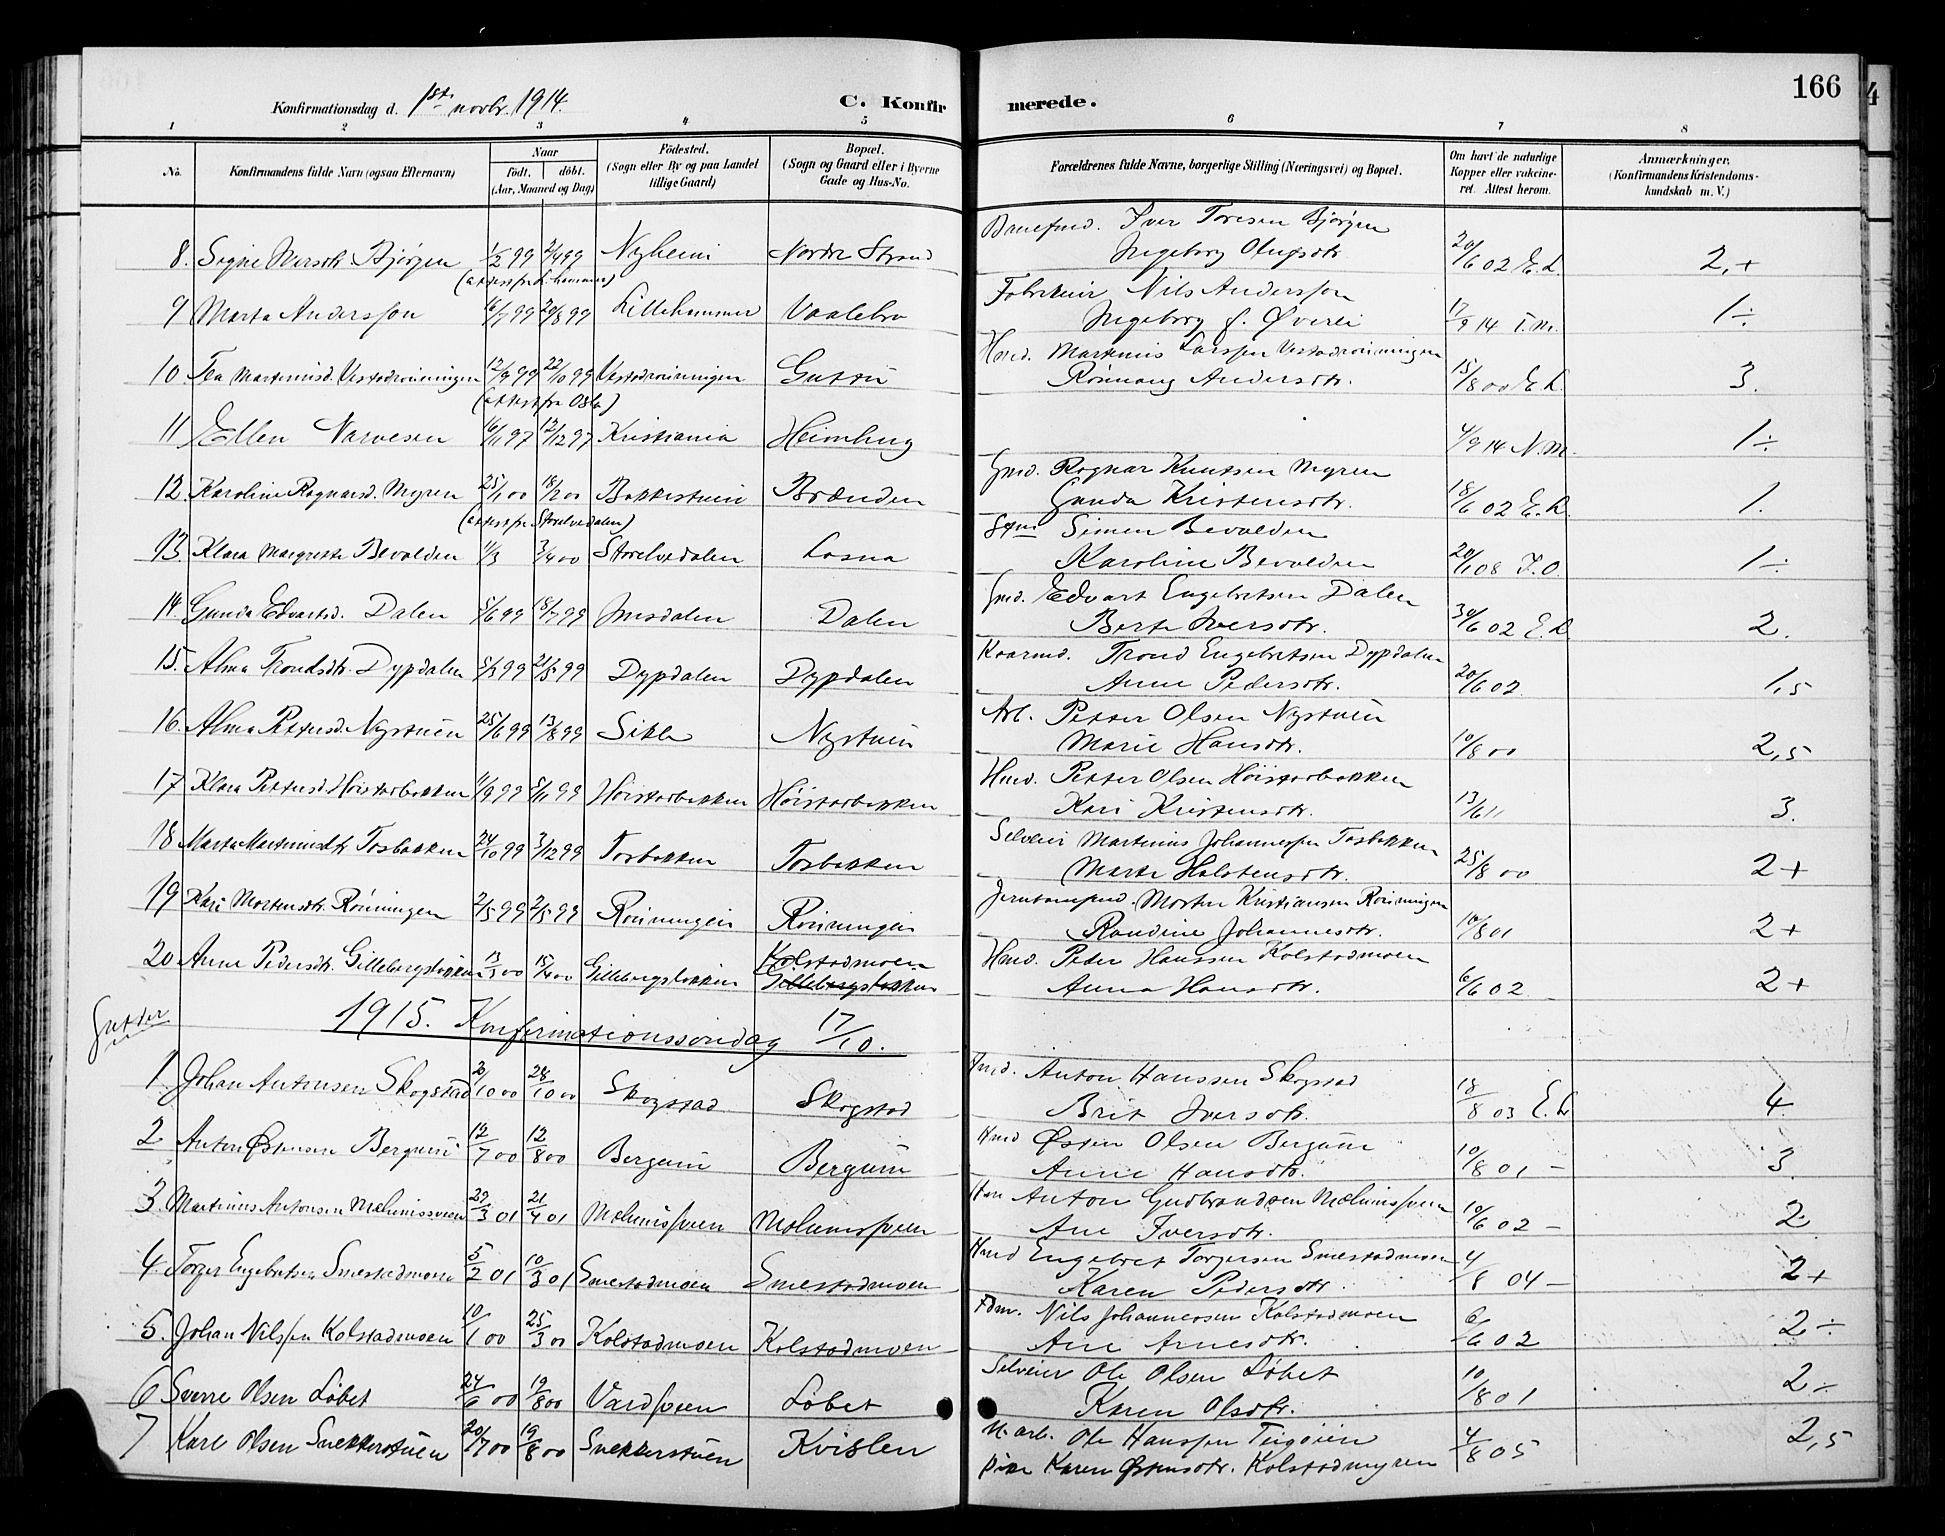 166
Konfirmationsdag d. 1ste novbr. 1914.
C. Konfirmerede.
1 2 3 4 5 6 7 8
No. Konfirmandens fulde Navn (ogsaa Efternavn) Naar Født. døbt. (Aar, Maaned og Dag) Fødested. (Sogn eller By og paa Landet tillige Gaard) Bopæl. (Sogn og Gaard eller i Byerne Gade og Hus-No. Forældrenes fulde Navne, borgerlige Stilling (Næringsvei) og Bopæl. Om havt de naturlige Kopper eller vakcineret. Attest herom. Anmærkninger. (Konfirmandens Kristendomskundskab m. V.)
8. Signe Bjørgen 1/2 99 2/4 99 Nyheim Nordre Strand Iver Toresen Bjørgen
Ingeborg Olufsdtr. 20/6 02 E.L. 2,+
(attest fra L.hammer)
9 Marta Andersson 16/7 99 20/8 99 Lillehammer Vaalebro Fabrikeier Nils Andersson
Ingeborg f. Øverli 17/9 14 1÷
10 Tea Martinusd. Vestadrønningen 12/9 99 22/10 99 Vestadrønningen Hmd. Martinus Larssen Vestadrønningen
Rønnaug Andersdtr. 15/8 00 E.L. 3.
(attest fra Oslo)
11 Ellen Narvesen 16/11 97 12/12 97 Kristiania Heimhug 4/9 14 N.M. 1÷
12. Karoline Ragnarsd. Myren 25/1 00 18/2 00 Bakkestuen Brænden Gmd. Ragnar Knutsen Myren
Gunda Kristensdtr. 18/6 02 E.L. 1.
(attest fra Storelvedalen)
13. Klara Margrethe Bevolden 1/3 3/4 00 Storelvedalen Losna Simen Bevolden
Karoline Bevolden 20/1 08 J.O. 1÷
14. Gunda Edvartsd. Dalen 5/6 99 18/7 99 Imsdalen Dalen Gmd. Edvart Engebretsen Dalen
Berte Iversdtr. 30/6 02 E.L 2.
15. Alma Trondsdtr. Dypdalen 5/3 99 21/5 99 Dypdalen Dypdalen Kaarmd. Trond Engebretsen Dypdalen
Anne Pedersdtr. 20/6 02 1,5
16. Alma Pettersd. Nystuen 25/6 99 13/8 99 Sikle Nystuen Arb. Petter Olsen Nystuen
Marie Hansdtr. 10/8 00 2,5
17 Klara Pettersd. Høistorbakken 11/9 99 5/11 99 Høistorbakken Høistorbakken Hmd. Petter Olsen Høistorbakken
Kari Kristensdtr. 13/6 11 3.
18 Marta Martinusdtr Tosbakken 24/10 99 3/12 99 Tosbakken Tosbakken Selveier Martinus Johannessen Tosbakken
Marte Halstensdtr. 25/8 00 2+
19 Kari Mortensdtr. Rønningen 2/5 99 2/5 99 Rønningen Rønningen Morten Kristiansen Rønningen
Randine Johannesdtr. 10/8 01 2+
20 Anne Pedersdtr. Gillebergsbakken 13/3 00 15/4 00 Gillebergsbakken Kolstadmoen Gillebergsbakken Hmd. Peder Hanssen Kolstadmoen
Anna Hansdtr. 6/6 02 2+
Gutter
1915. Konfirmationssøndag 17/10.
1. Johan Antonsen Skogstad 2/10 00 28/10 00 Skogstad Skogstad Anton Hanssen Skogstad
Brit Iversdtr. 18/8 03 E.L 4
2 Anton Østensen Bergum 12/7 00 12/8 00 Bergum Bergum Hmd Østen Olsen Bergum
Anne Hansdtr. 10/8 01 – 3.
3 Martinus Antonsen Mælumssveen 22/3 01 21/4 01 Mælumssveen Mælumssveen Anton Gudbrandsen Mælumssveen
Ane Iversdtr. 10/6 02 – 2
4. Torger Engebretsen Smestadmoen 5/2 01 10/3 01 Smestadmoen Smestadmoen Hmd Engebret Torgersen Smestadmoen
Karen Pedersdtr. 4/8 04 – 2+
5. Johan Nilssen Kolstadmoen 10/1 00 25/3 00 Kolstadmoen Kolstadmoen Nils Johannessen Kolstadmoen
Ane Arnesdtr. 6/6 02 2÷
6 Sverre Olsen Løbet 24/6 00 19/8 00 Vardsveen Løbet Selveier Ole Olsen Løbet
Karen Olsdtr. 10/8 01 2÷
7 Karl Olsen Snekkerstuen 20/7 00 19/8 00 Snekkerstuen Kvislen Ole Hanssen Teigøien
Karen Østensdtr. Kolstadmyren 4/8 05 2,5